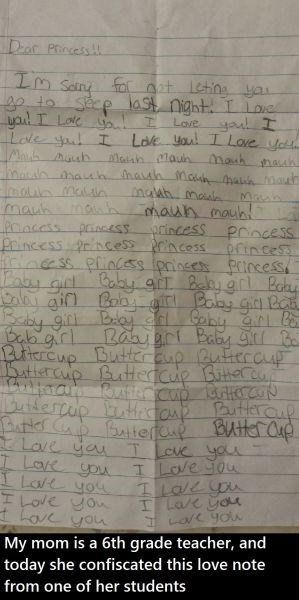 Dear Princess!!
I'm sorry for not leting you
go to sleep last night! I Love
you! I Love you! I Love you! I
Love you! I Love you! I Love you!
Mauh Mauh Mauh Mauh Mauh
Mauh Mauh Mauh Mauh Mauh
Mauh Mauh Mauh Mauh Mauh
Mauh Mauh Mauh!
Princess princess princess princess
princess princess princess princess
princess princess princess princess
Baby girl Baby girl Baby girl Baby
Baby girl Baby girl Baby girl Ba
Baby girl Baby girl Baby girl Ba
Bab girl Baby girl Baby girl Ba
Buttercup Buttercup Buttercup
Buttercup Buttercup Buttercup
Buttercup Buttercup Buttercup
Buttercup Buttercup Buttercup
Buttercup Buttercup Buttercup
I Love you I Love you
I Love you I Love you
I Love you I Love you
I Love you I Love you
I Love you I Love you
My mom is a 6th grade teacher, and
today she confiscated this love note
from one of her students